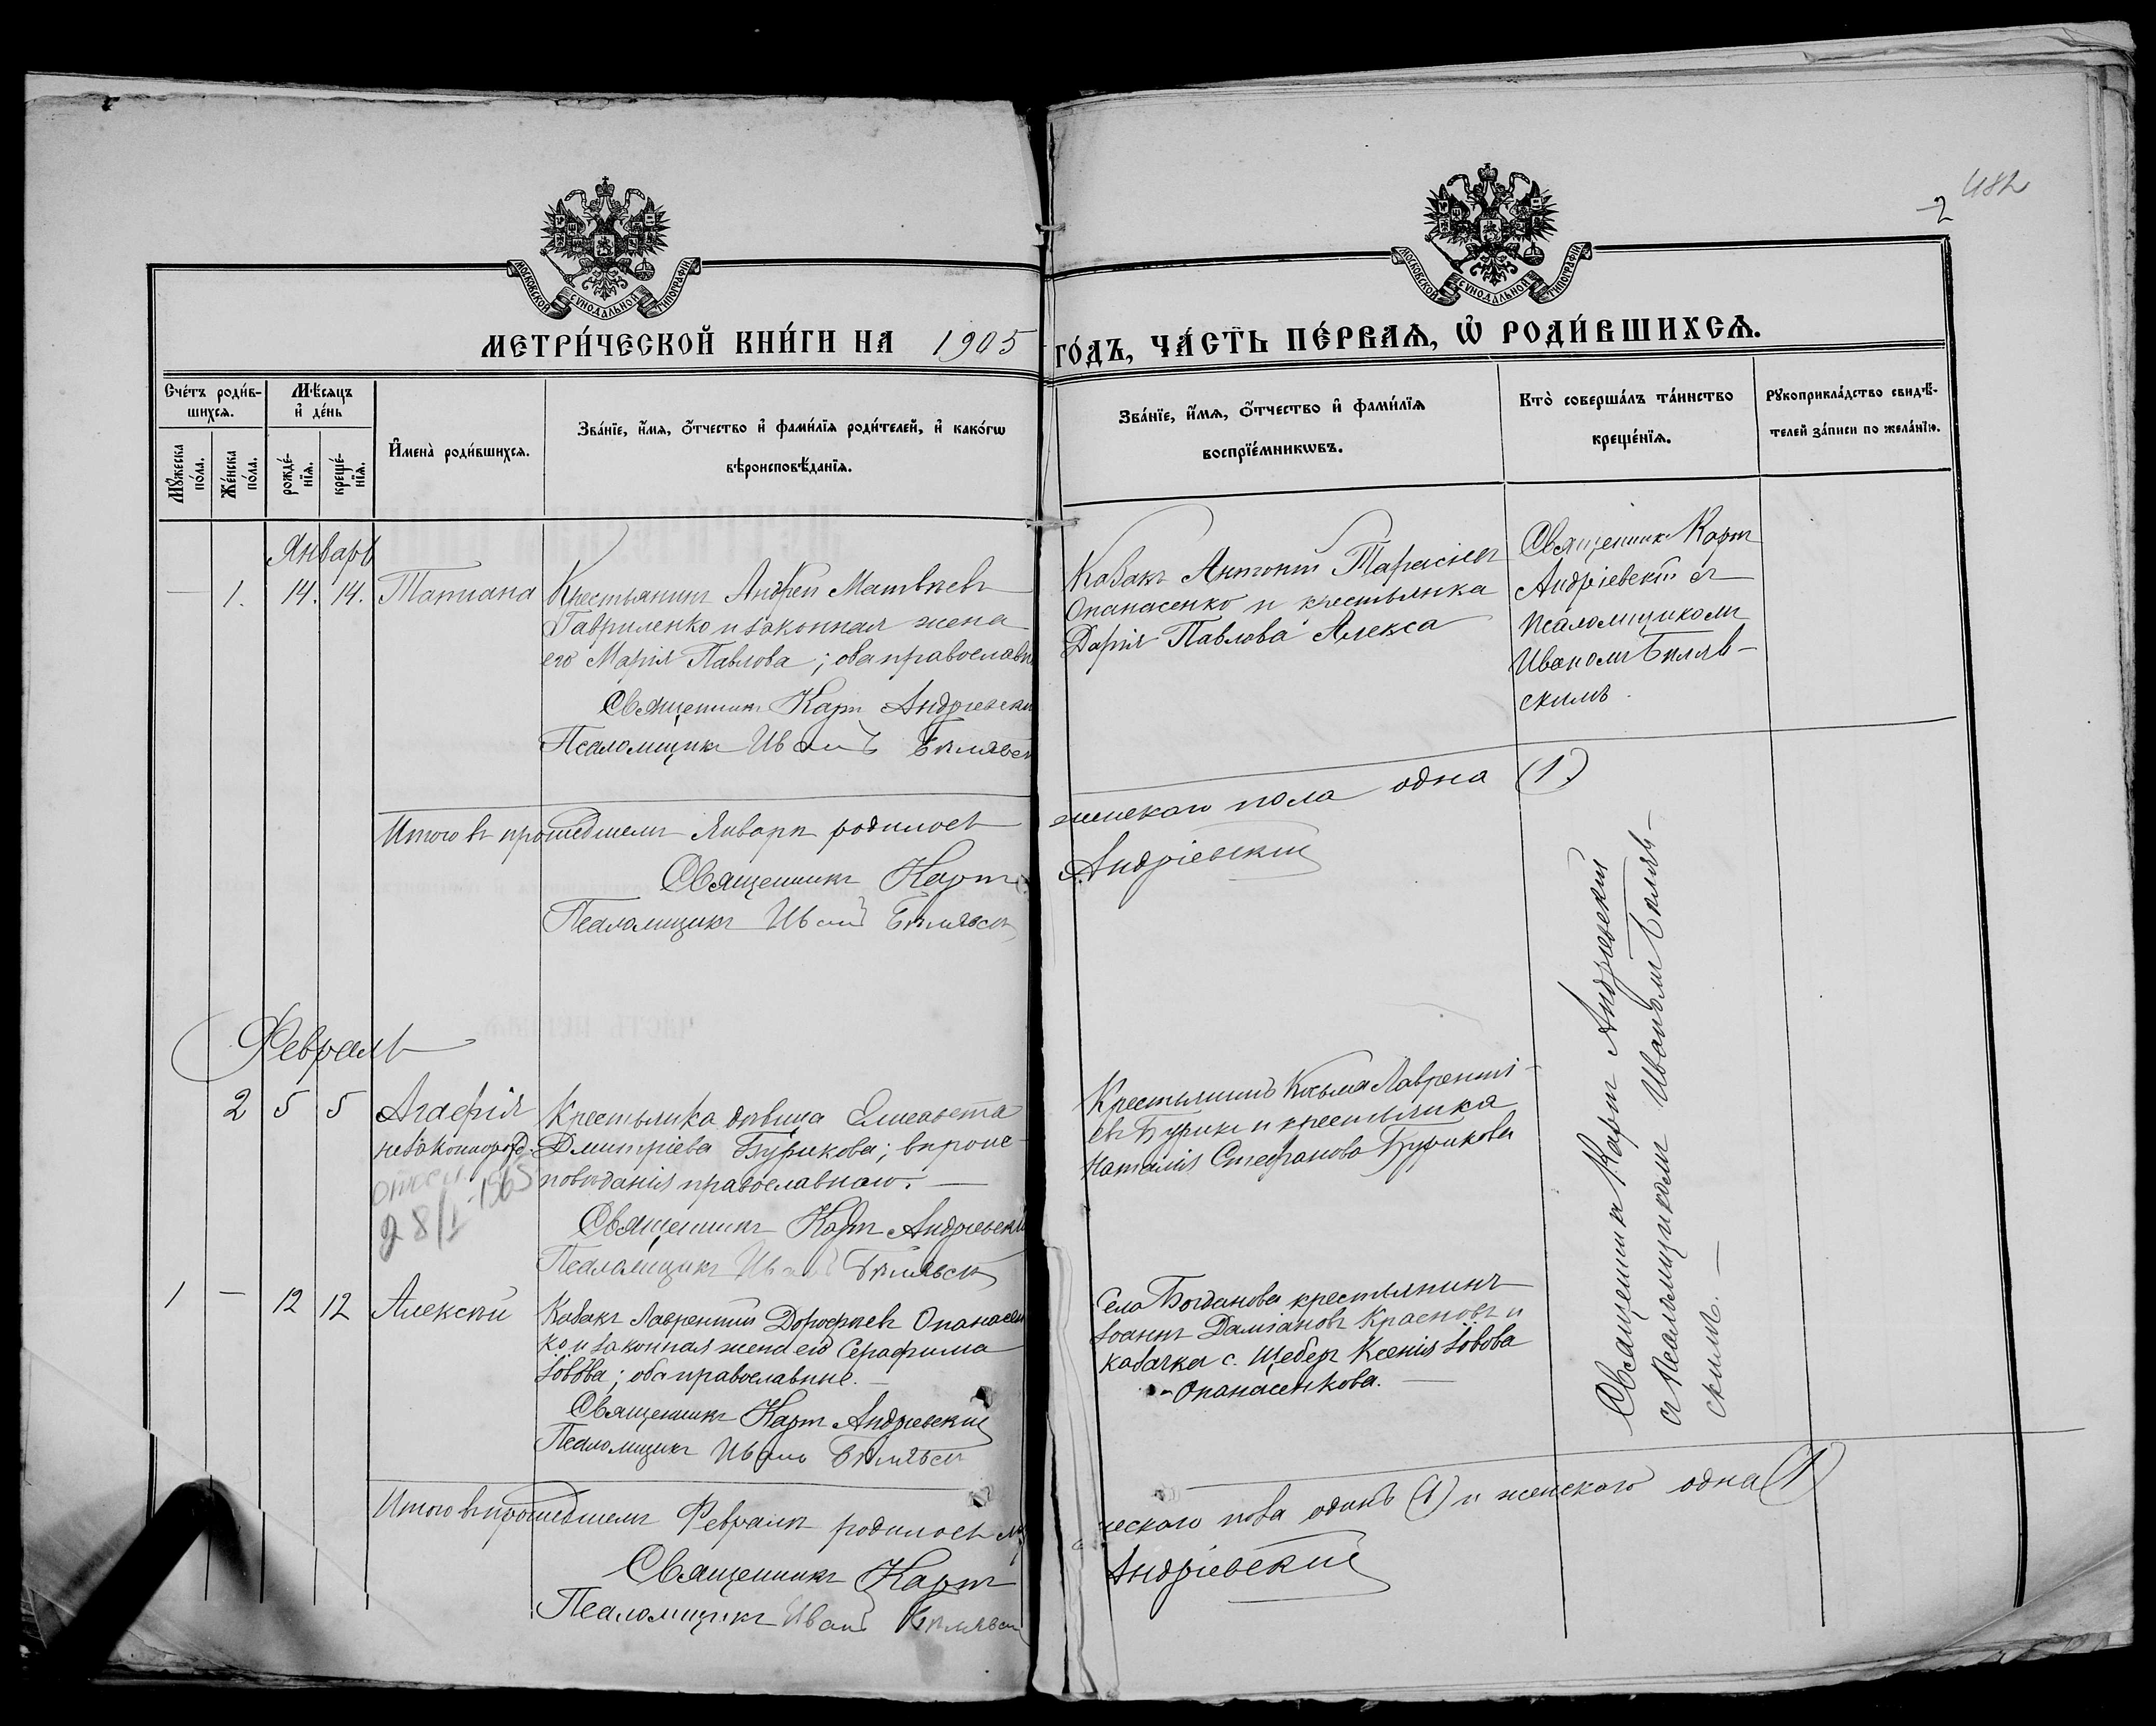 482
2
МОСКОВСКОЙ СѴНОДАЛЬНОЙ ТИПОГРАФІИ
МОСКОВСКОЙ СѴНОДАЛЬНОЙ ТИПОГРАФІИ
МЕТРИ́ЧЕСКОЙ КНИ́ГИ НА 1905 ГО́ДЪ, ЧА́СТЬ ПЕ́РВАѦ, Ѡ҆ РОДИ́ВШИХСѦ.
Сче́тъ роди́в-
шихсѧ.
Мꙋ́жеска по́ла.
Же́нска по́ла.
Мѣ́сѧцъ
и҆ де́нь
рожде́-
нїѧ.
креще́-
нїѧ.
И҆мена̀ роди́вшихсѧ.
Зва́нїе, и҆́мѧ, ѻ҆́тчество и҆ фами́лїѧ роди́телей, и҆ како́гѡ
вѣроисповѣ́данїѧ.
Зва́нїе, и҆́мѧ, ѻ҆́тчество и҆ фами́лїѧ
воспрїе́мникѡвъ.
Кто̀ соверша́лъ та́инство
креще́нїѧ.
Рꙋкоприкла́дство свидѣ́-
телей за́писи по жела́нїю.
Январь
— 1. 14. 14. Татіана
Крестьянинъ Андрей Матвѣевъ
Гавриленко и законная жена
его Марія Павлова; оба православн
Священникъ Карпъ Андріевскі
Псаломщикъ Иванъ Бѣлявск
Козакъ Антоній Тарасіевъ
Опанасенко и крестьянка
Дарія Павлова Алекса
Священникъ Карпъ
Андріевскій съ
псаломщикомъ
Иваномъ Бѣляв-
скимъ.
Итого въ прошедшемъ Январѣ родилось женскаго пола одна (1)
Священникъ Карпъ Андріевскій
Псаломщикъ Иванъ Бѣлявск
Февраль
2 5 5 Агафія
незаконнорожд.
28/I
Крестьянка дѣвица Елисавета
Дмитріева Бурикова; вѣроис-
повѣданія православнаго. —
Священникъ Карпъ Андріевскі
Псаломщикъ Иванъ Бѣлявск
Крестьянинъ Козьма Лавренті-
евъ Бурикъ и крестьянка
Наталія Стефанова Бурикова
1 — 12 12 Алексѣй
Козакъ Лаврентій Дорофѣевъ Опанасен
ко и законная жена его Серафима
Іовова; оба православные. —
Священникъ Карпъ Андріевскій
Псаломщикъ Иванъ Бѣлявск
Села Богданова крестьянинъ
Іоаннъ Даміановъ Красновъ и
козачка с. Щебер Ксенія Іовова
Опанасенкова. —
Священникъ Карпъ Андріевскій
съ Псаломщикомъ Иваномъ Бѣляв-
скимъ. —
Итого въ прошедшемъ Февралѣ родилось му ческаго пола одинъ (1) и женскаго одна (1)
Священникъ Карпъ Андріевскій
Псаломщикъ Иванъ Бѣлявск